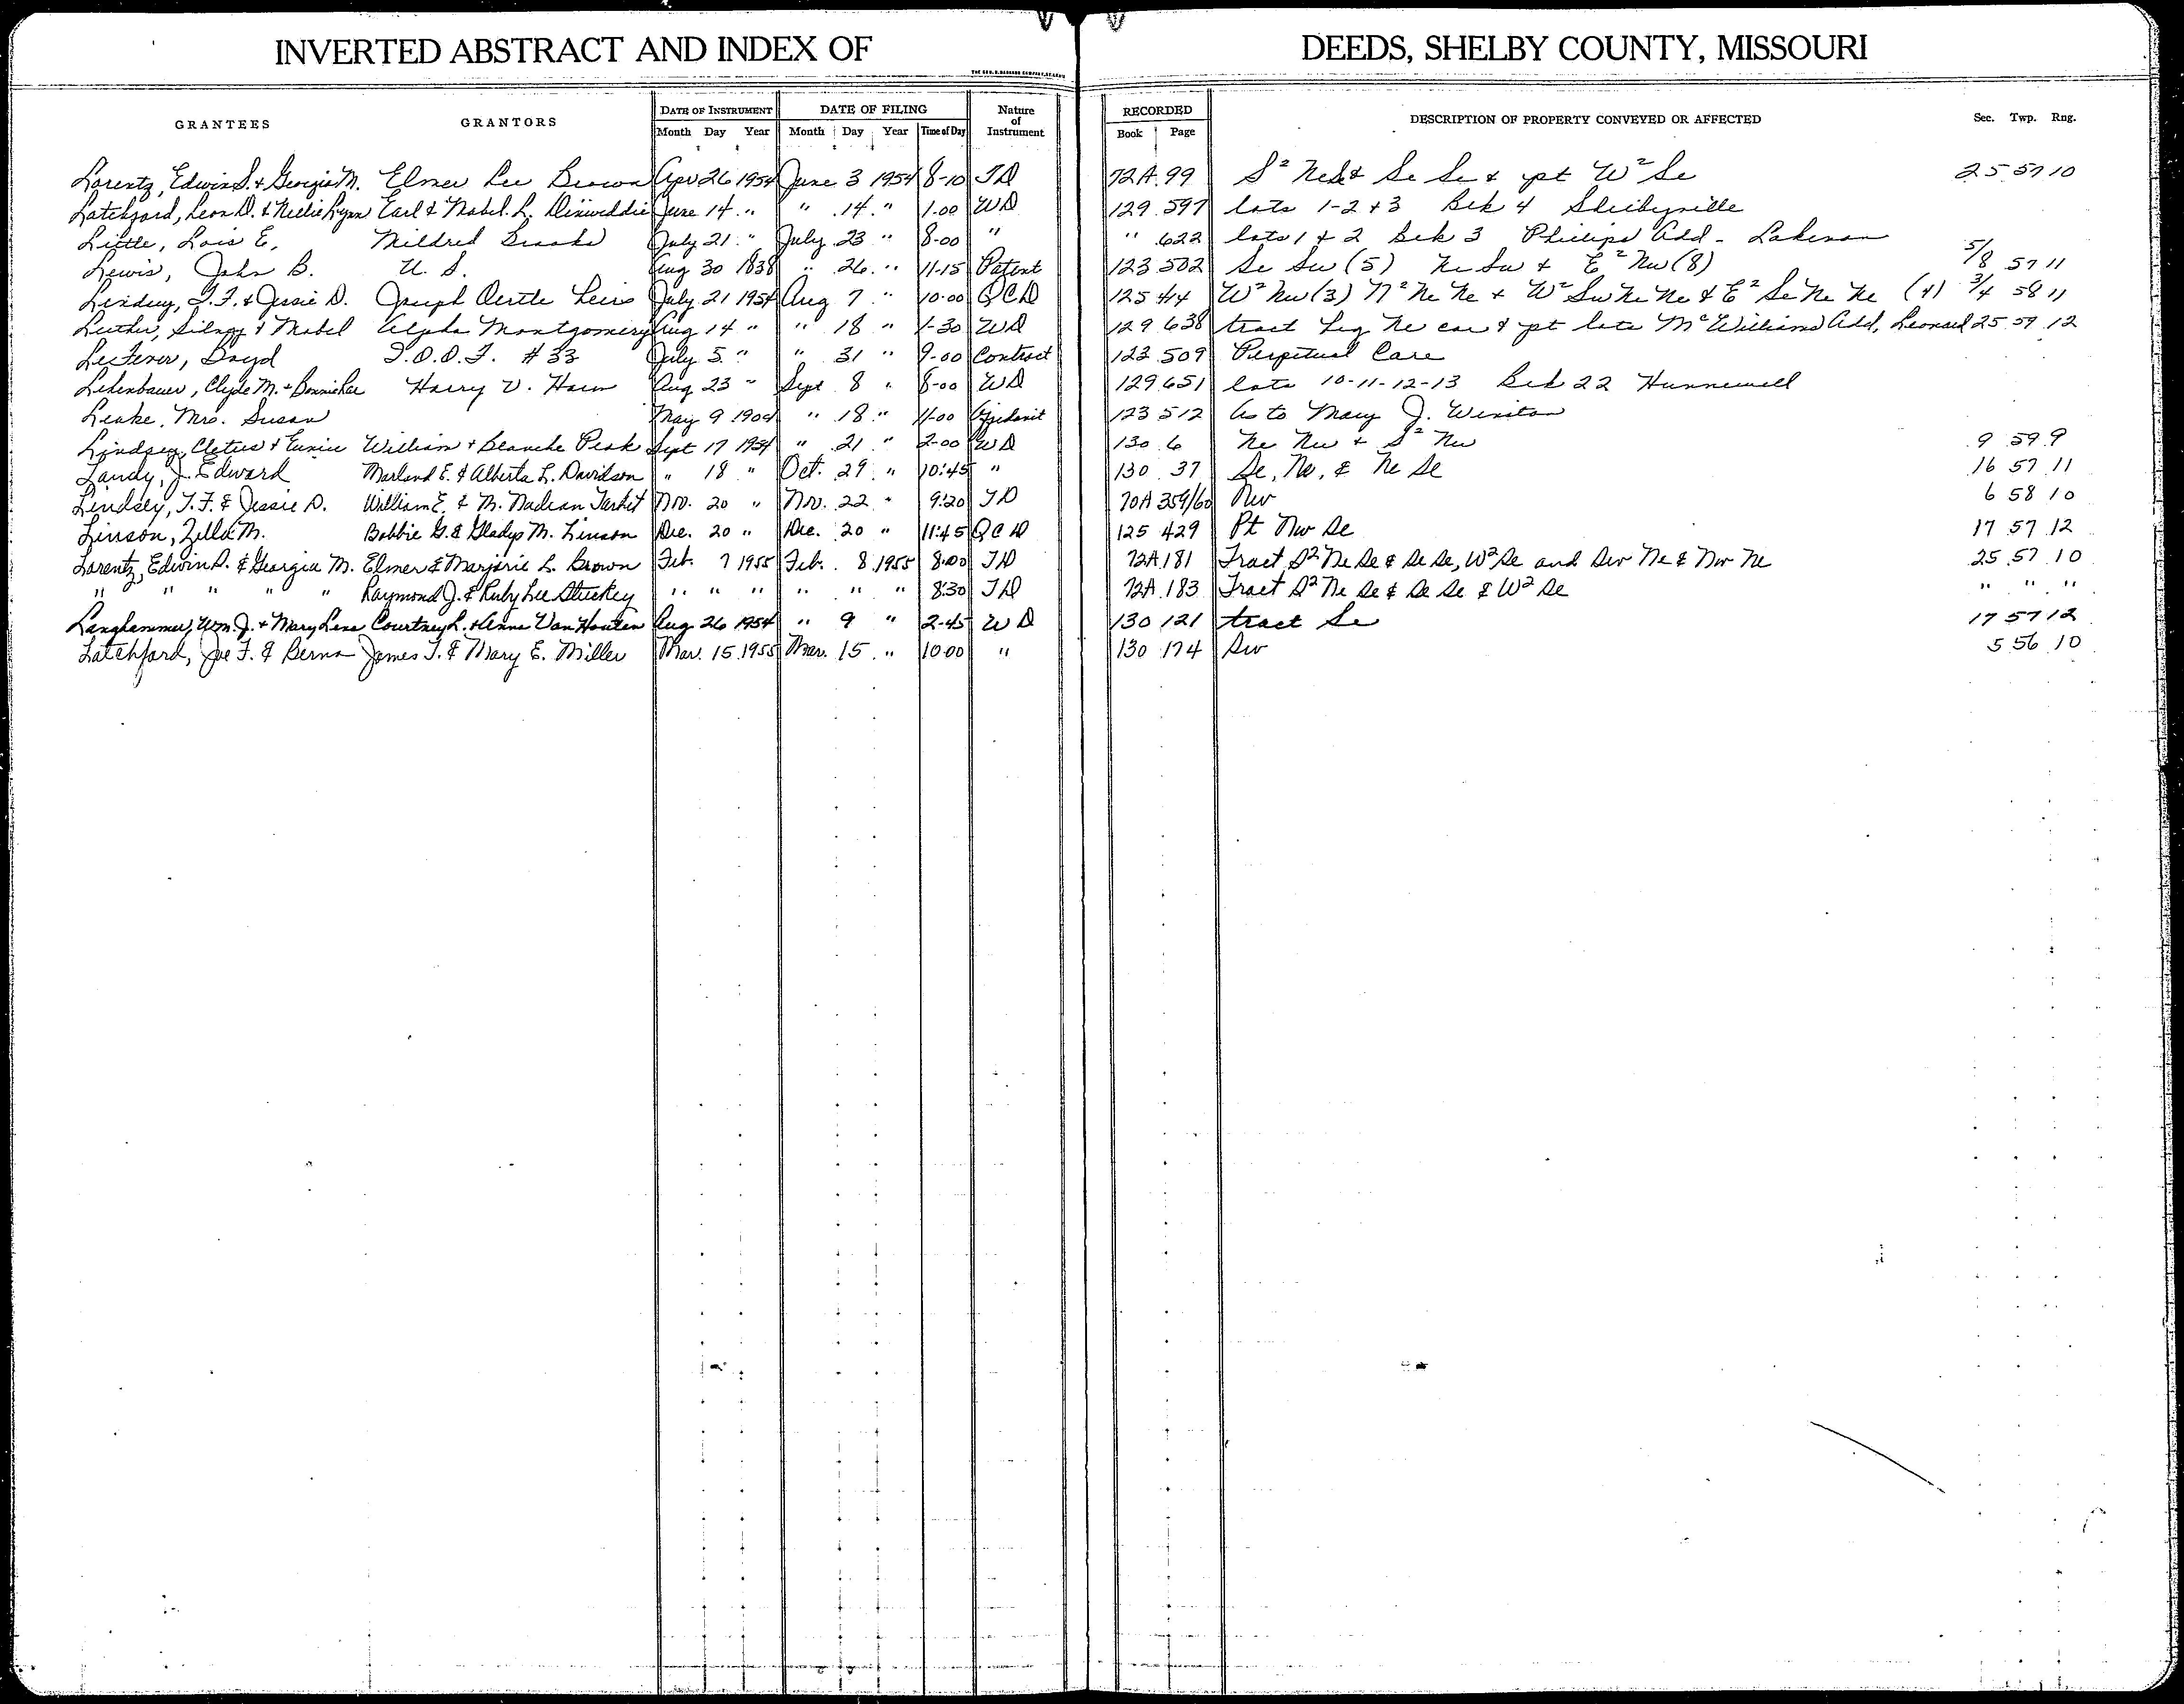 INVERTED ABSTRACT AND INDEX OF DEEDS, SHELBY COUNTY, MISSOURI
GRANTEES GRANTORS DATE OF INSTRUMENT DATE OF FILING Nature of Instrument RECORDED DESCRIPTION OF PROPERTY CONVEYED OR AFFECTED Sec. Twp. Rng.
Month Day Year Month Day Year Time of Day Book Page
Lorentz, Edwin S. & Georgia M. Elmer Lee Brown Apr 26 1954 June 3 1954 8-10 TD 72A 99 S² Ne Se & Se Se & pt W² Se 25 57 10
Latchford, Leon D. & Nellie Lynn Earl & Mabel L. Dinwiddie June 14 " " 14 " 1-00 WD 129 597 lots 1-2 & 3 Blk 4 Shelbyville
Little, Lois E. Mildred Brooks July 21 " July 23 " 8-00 " " 622 lots 1 & 2 Blk 3 Phillips Add - Lakenan
Lewis, John B. U. S. Aug 30 1838 " 26 " 11-15 Patent 123 502 Se Sw (5) Ne Sw & E² Nw (8) 5/8 57 11
Lindsey, T. F. & Jessie D. Joseph Oertle July 21 1954 Aug 7 " 10-00 QCD 125 414 W² Nw (3) N² Ne Ne & W² Sw Ne Ne & E² Se Ne Ne (4) 3/4 58 11
Luther, Sidney & Mabel Alpha Montgomery Aug 14 " " 18 " 1-30 WD 129 638 tract beg Ne cor & pt lots McWilliams Add, Leonard 25 59 12
LeFever, Boyd I. O. O. F. #33 July 5 " " 31 " 9-00 Contract 123 509 Perpetual Care
Clyde M. & Harry V. Aug 23 " Sept 8 " 8-00 WD 129 651 lots 10-11-12-13 Blk 22 Hunnewell
Leake, Mrs. Susan May 9 1904 " 18 " 11-00 Affidavit 123 512 As to Mary J. Winston
Lindsey, Cletus & Eunice William & Blanche Peak Sept 17 1954 " 21 " 2-00 WD 130 6 Ne Nw & S² Nw 9 59 9
Landy, J. Edward Marland E. & Alberta L. Davidson " 18 " Oct. 29 " 10:45 " 130 37 Se, Nw, & Ne Se 16 57 11
Lindsey, T. F. & Jessie D. William E. & M. Nadean Nov. 20 " Nov. 22 " 9:20 TD 70A 359/60 Nw 6 58 10
Linson, Zella M. Bobbie G. & Gladys M. Linson Dec. 20 " Dec. 20 " 11:45 QCD 125 429 Pt Nw Se 17 57 12
Lorentz, Edwin S. & Georgia M. Elmer & Marjorie L. Brown Feb. 7 1955 Feb. 8 1955 8:00 TD 72A 181 Tract S² Ne Se & Se Se, W² Se and Sw Ne & Nw Ne 25 57 10
" " " " " Raymond J. & Ruby Lee Stuckey " " " " " " 8:30 TD 72A 183 Tract S² Ne Se & Se Se & W² Se " " "
Langhammer, Wm. J. & Mary Lena Courtney L. & Anna Van Houten Aug 26 1954 " 9 " 2-45 WD 130 121 tract Se 17 57 12
Latchford, Joe F. & Berna James T. & Mary E. Miller Mar. 15 1955 Mar. 15 " 10:00 " 130 174 Sw 5 56 10